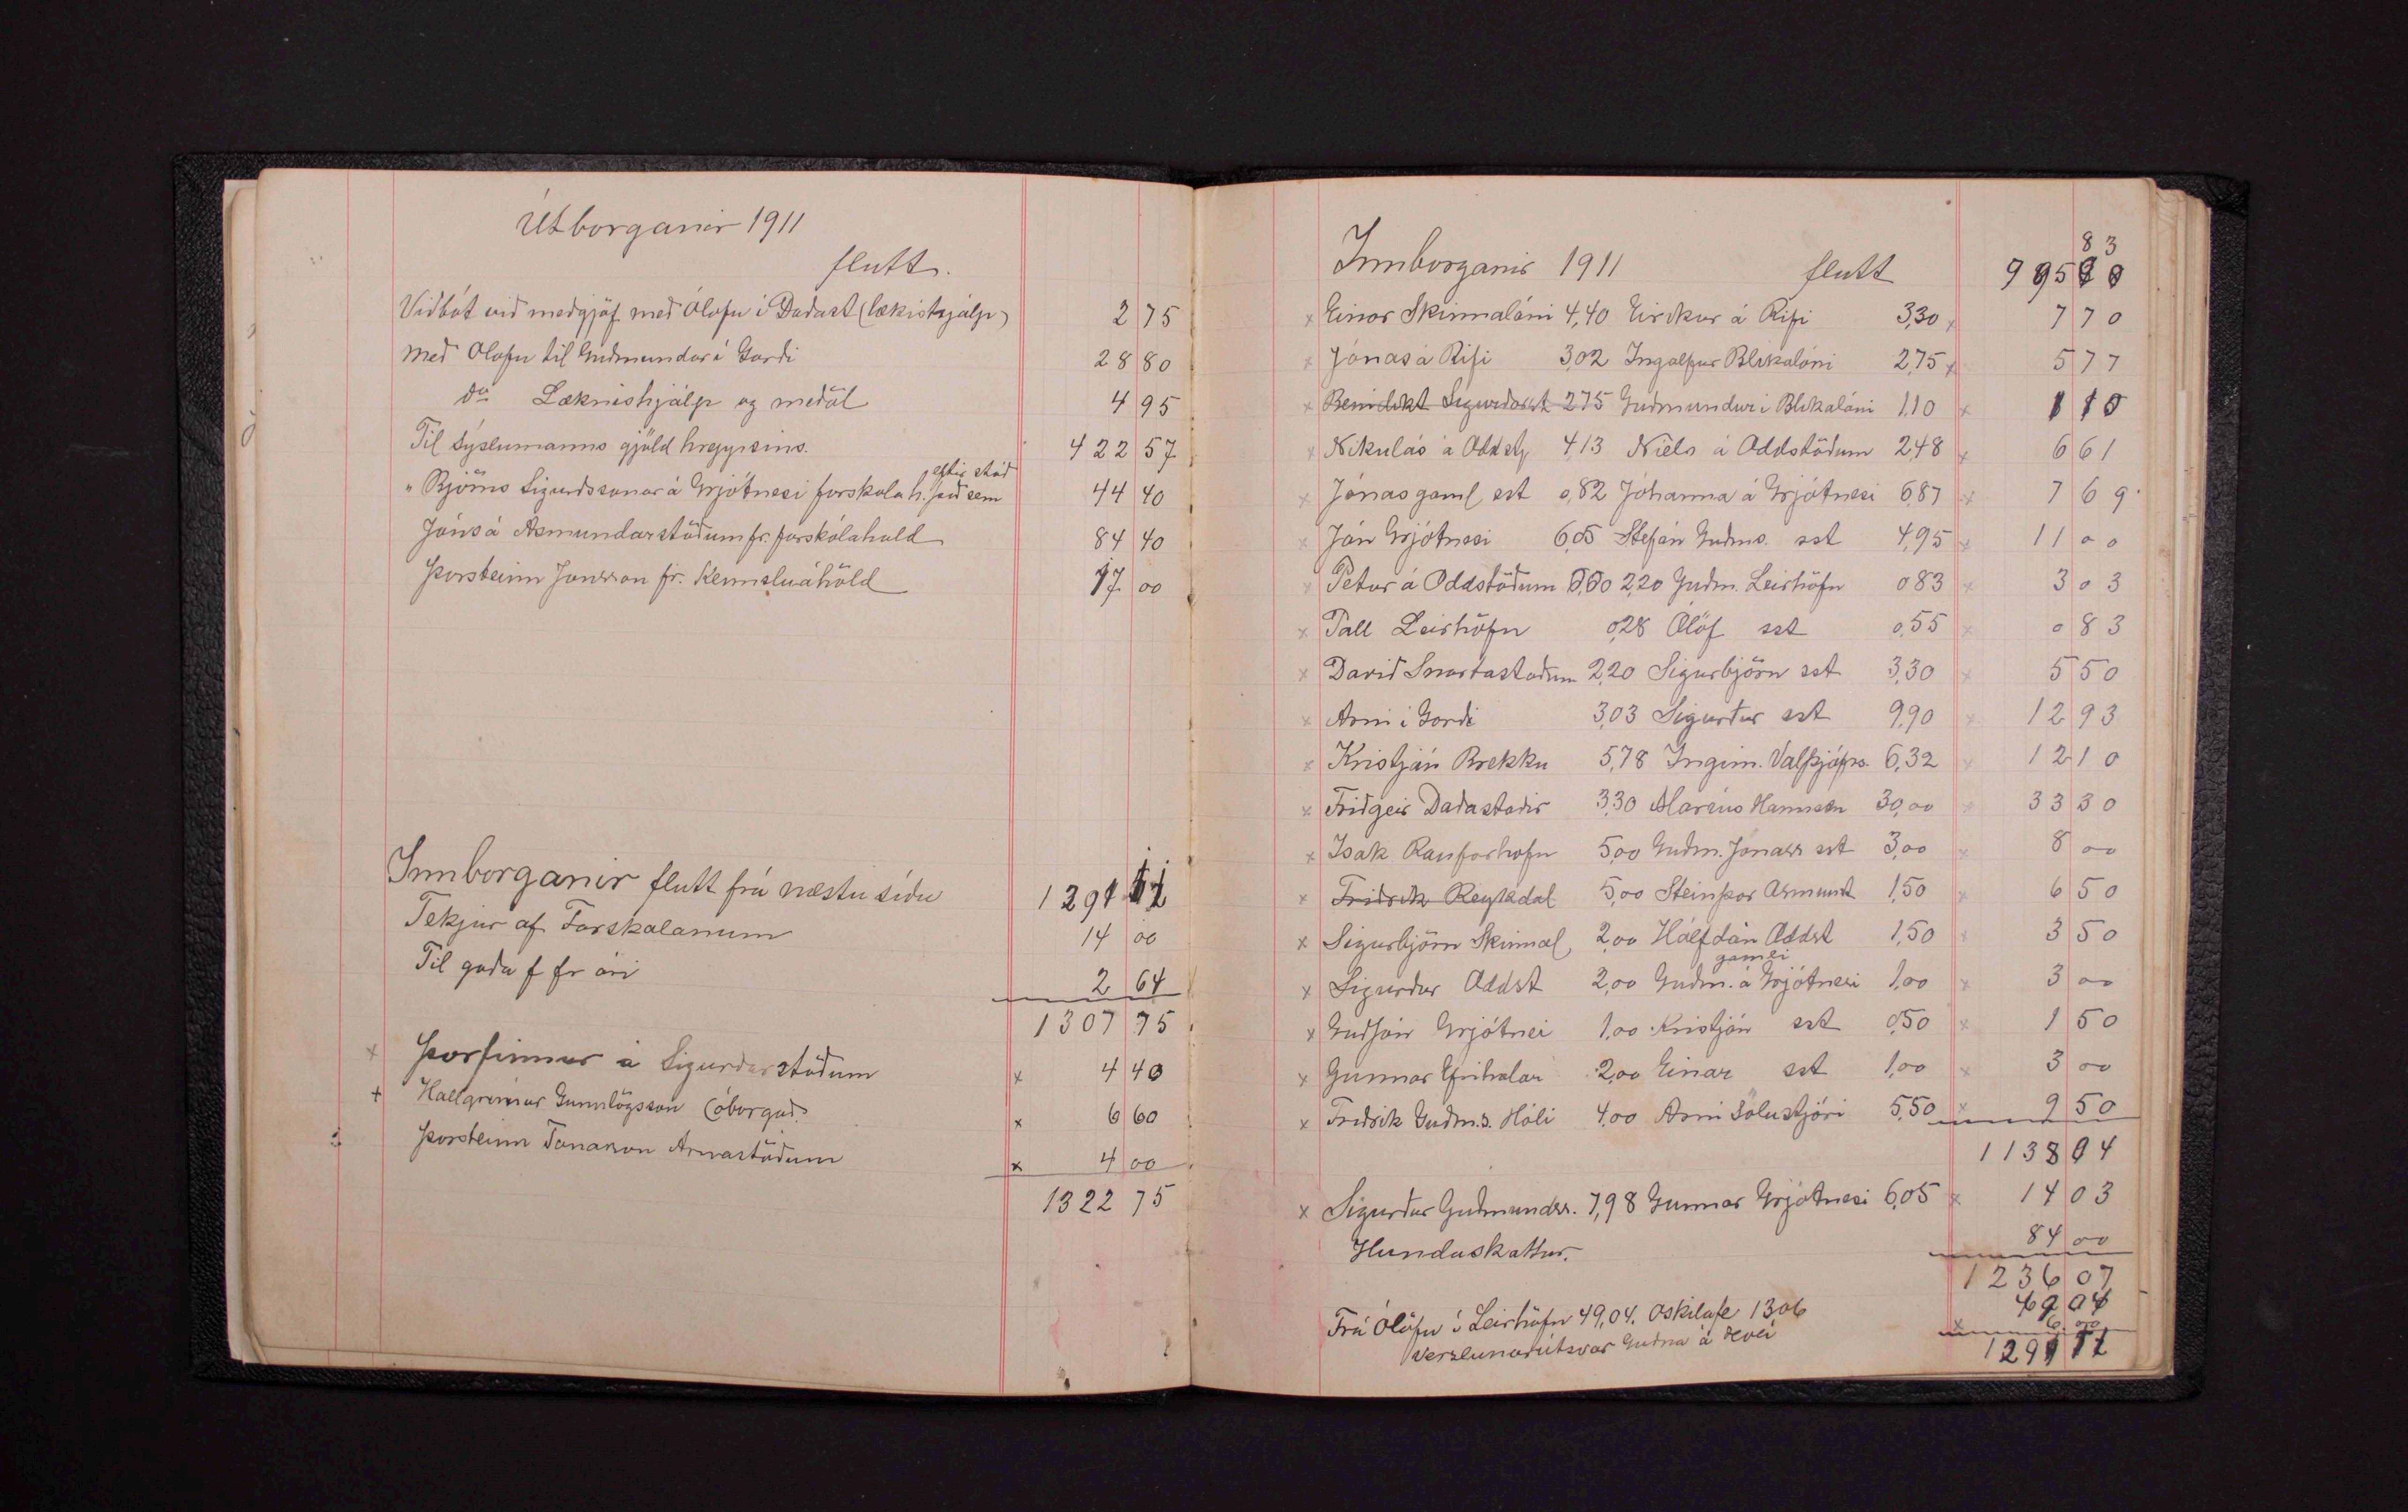 Útborganir 1911
flutt.
Vidbót vid medgjöf med Ólöfu í Dadast (lækishjálp) 2 75
Med Olöfu til Gudmundar í Gardi 28 80
do Læknishjálp og medöl 4 95
Til Sýslumanns gjöld hreppsins. 422 57
eftir stöd
" Björns Sigurdssonar á Grjótnesi farskóla h. sem 44 40
Jóns á Asmundarstödum fr. farskólahald 84 40
Þorsteinn Jonsson fr. Kennsluáhöld 17 00
Innborganir flutt frá næstu sídu 1291 11
Tekjur af Farskólanum 14 00
Til goda f fr ári 2 64
1307 75
x Þorfinnur á Sigurdarstödum x 4 40
+ Hallgrímur Gunnlögsson (óborgad) x 6 60
Þorsteinn Arnastödum x 4 00
1322 75
Innborganir 1911 flutt 83
995
x Einar Skinnalóni 4,40 Eirikur á Rifi 3,30 x 7 70
x Jónas á Rifi 3,02 Ingolfur Blikalóni 2,75 x 5 77
x Benidikt Sigurdarst 2 75 Gudmundur i Blikalóni 1,10 x 1 10
x Nikulás á Oddst 4,13 Niels á Oddstödum 2,48 x 6 61
x Jónas gaml sst 0,82 Jóhanna á Grjótnesi 6,87 x 7 69
x Jón Grjótnesi 6,05 Stefán Gudms. sst 4,95 x 11 00
x Petur á Oddstödum 2,20 Gudm. Leirhöfn 0 83 x 3 03
x Pall Leirhöfn 0,28 Ólöf sst 0,55 x 0 83
x David Snartastodum 2,20 Sigurbjörn sst 3,30 x 5 50
x Arni i Gardi 3,03 Sigurdur sst 9,90 x 12 93
x Kristján Brekku 5,78 Ingim. Valþjófss. 6,32 x 12 10
x Fridgeir Dadastodir 3,30 Maríus Hannsen 30,00 x 33 30
x Isak Raufarhofn 5,00 Gudm. Jónass sst 3,00 x 8 00
x Fridrik Reykdal 5,00 Steinþor Asmund 1,50 x 6 50
x Sigurbjörn Skinnal, 2,00 Hálfdán Oddst 1,50 x 3 50
gamli
x Sigurdur Oddst 2,00 Gudm. á Grjótnesi 1,00 x 3 00
x Gudjón Grjótnei 1,00 Kristján sst 0,50 x 1 50
x Gunnar Efrihólar 2,00 Einar sst 1,00 x 3 00
x Fridrik Gudm.s. Hóli 4,00 Arni Sölustjóri 5,50 x 9 50
1138 04
x Sigurdur Gudmundss. 7,98 Gunnar Grjótnesi 6,05 x 14 03
Hundaskattur. 84 00
1236 07
Frá Ólöfu í Leirhöfn 49,04. Oskilafe 13 06 49 04
Verzlunarútsvar Gudna á x 6.00
1291 11